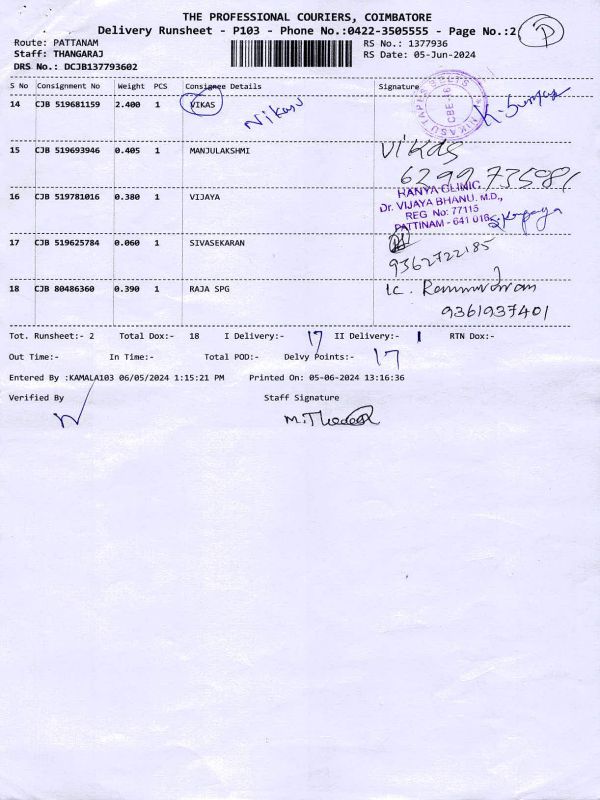 THE PROFESSIONAL COURIERS, COIMBATORE
Delivery Runsheet - P103 - Phone No.:0422-3505555 - Page No.:2 P
Route: PATTANAM RS No.: 1377936
Staff: THANGARAJ RS Date: 05-Jun-2024
DRS No.: DCJB137793602
S No Consignment No Weight PCS Consignee Details Signature
14 CJB 519681159 2.400 1 VIKAS Nikasu
15 CJB 519693946 0.405 1 MANJULAKSHMI Vikas
6299735981
16 CJB 519781016 0.380 1 VIJAYA
Dr. VIJAYA BHANU, M.D.,
REG No: 77115
PATTINAM - 641 016
17 CJB 519625784 0.060 1 SIVASEKARAN
9362722185
18 CJB 80486360 0.390 1 RAJA SPG
9361937401
Tot. Runsheet:- 2 Total Dox:- 18 I Delivery:- 17 II Delivery:- 1 RTN Dox:-
Out Time:- In Time:- Total POD:- Delvy Points:- 17
Entered By :KAMALA103 06/05/2024 1:15:21 PM Printed On: 05-06-2024 13:16:36
Verified By Staff Signature